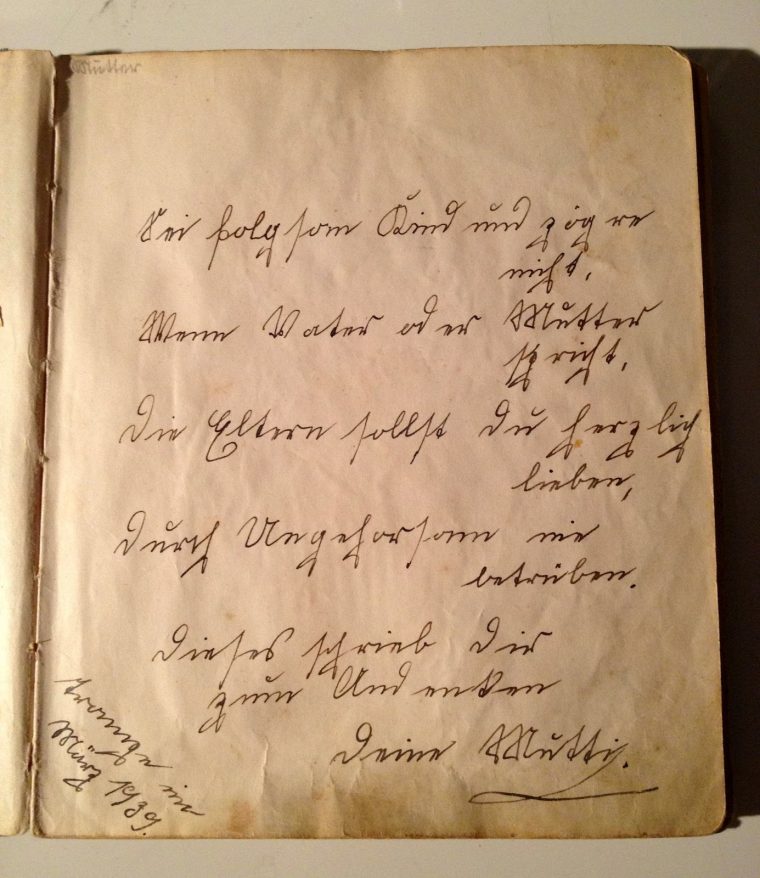 Mutter
Sei folgsam Kind und zögre
nicht,
Wenn Vater oder Mutter
spricht,
Die Eltern sollst du herzlich
lieben,
Durch Ungehorsam nie
betrüben.
Dieses schrieb Dir
zum Andenken
Deine Mutti.
im
März 1939.